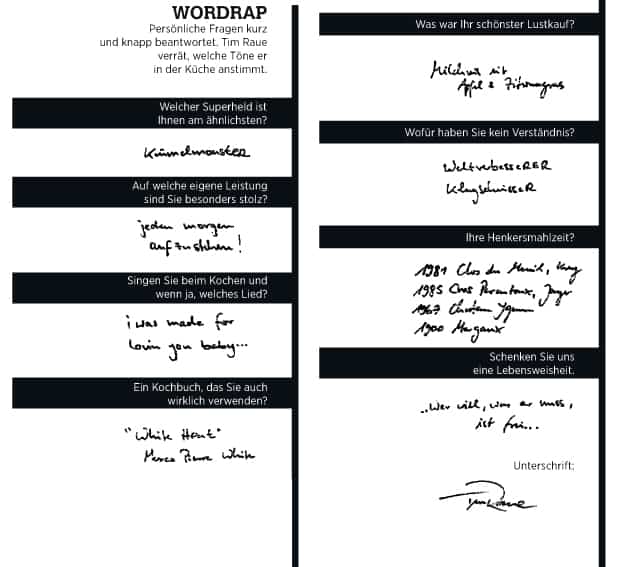 WORDRAP
Persönliche Fragen kurz
und knapp beantwortet. Tim Raue
verrät, welche Töne er
in der Küche anstimmt.
Welcher Superheld ist
Ihnen am ähnlichsten?
Krümelmonster
Auf welche eigene Leistung
sind Sie besonders stolz?
jeden morgen
aufzustehen!
Singen Sie beim Kochen und
wenn ja, welches Lied?
i was made for
lovin you baby...
Ein Kochbuch, das Sie auch
wirklich verwenden?
"White Heat"
Marco Pierre White
Was war Ihr schönster Lustkauf?
Milchreis mit
Apfel &
Wofür haben Sie kein Verständnis?
WeltverbesseRER
KlugscheisseR
Ihre Henkersmahlzeit?
1981 Clos du Mesnil, Krug
1985 Cros Parantoux, Jayer
Chateau Yquem
1900 Margaux
Schenken Sie uns
eine Lebensweisheit.
„Wer will, was er muss,
ist frei...
Unterschrift: